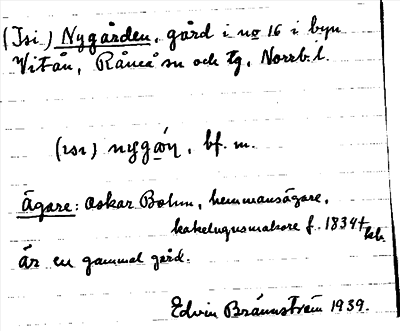 (Isi) Nygården, gård i no 16 i byn
Vitån, Råneå sn och tg, Norrb. l.
(ısı) nygɷ́ṇ, bf. m.
Ägare: Oskar Bohm, hemmansägare,
kakelugnsmakare f. 1834 +
är en gammal gård.
Edvin Brännström 1939.